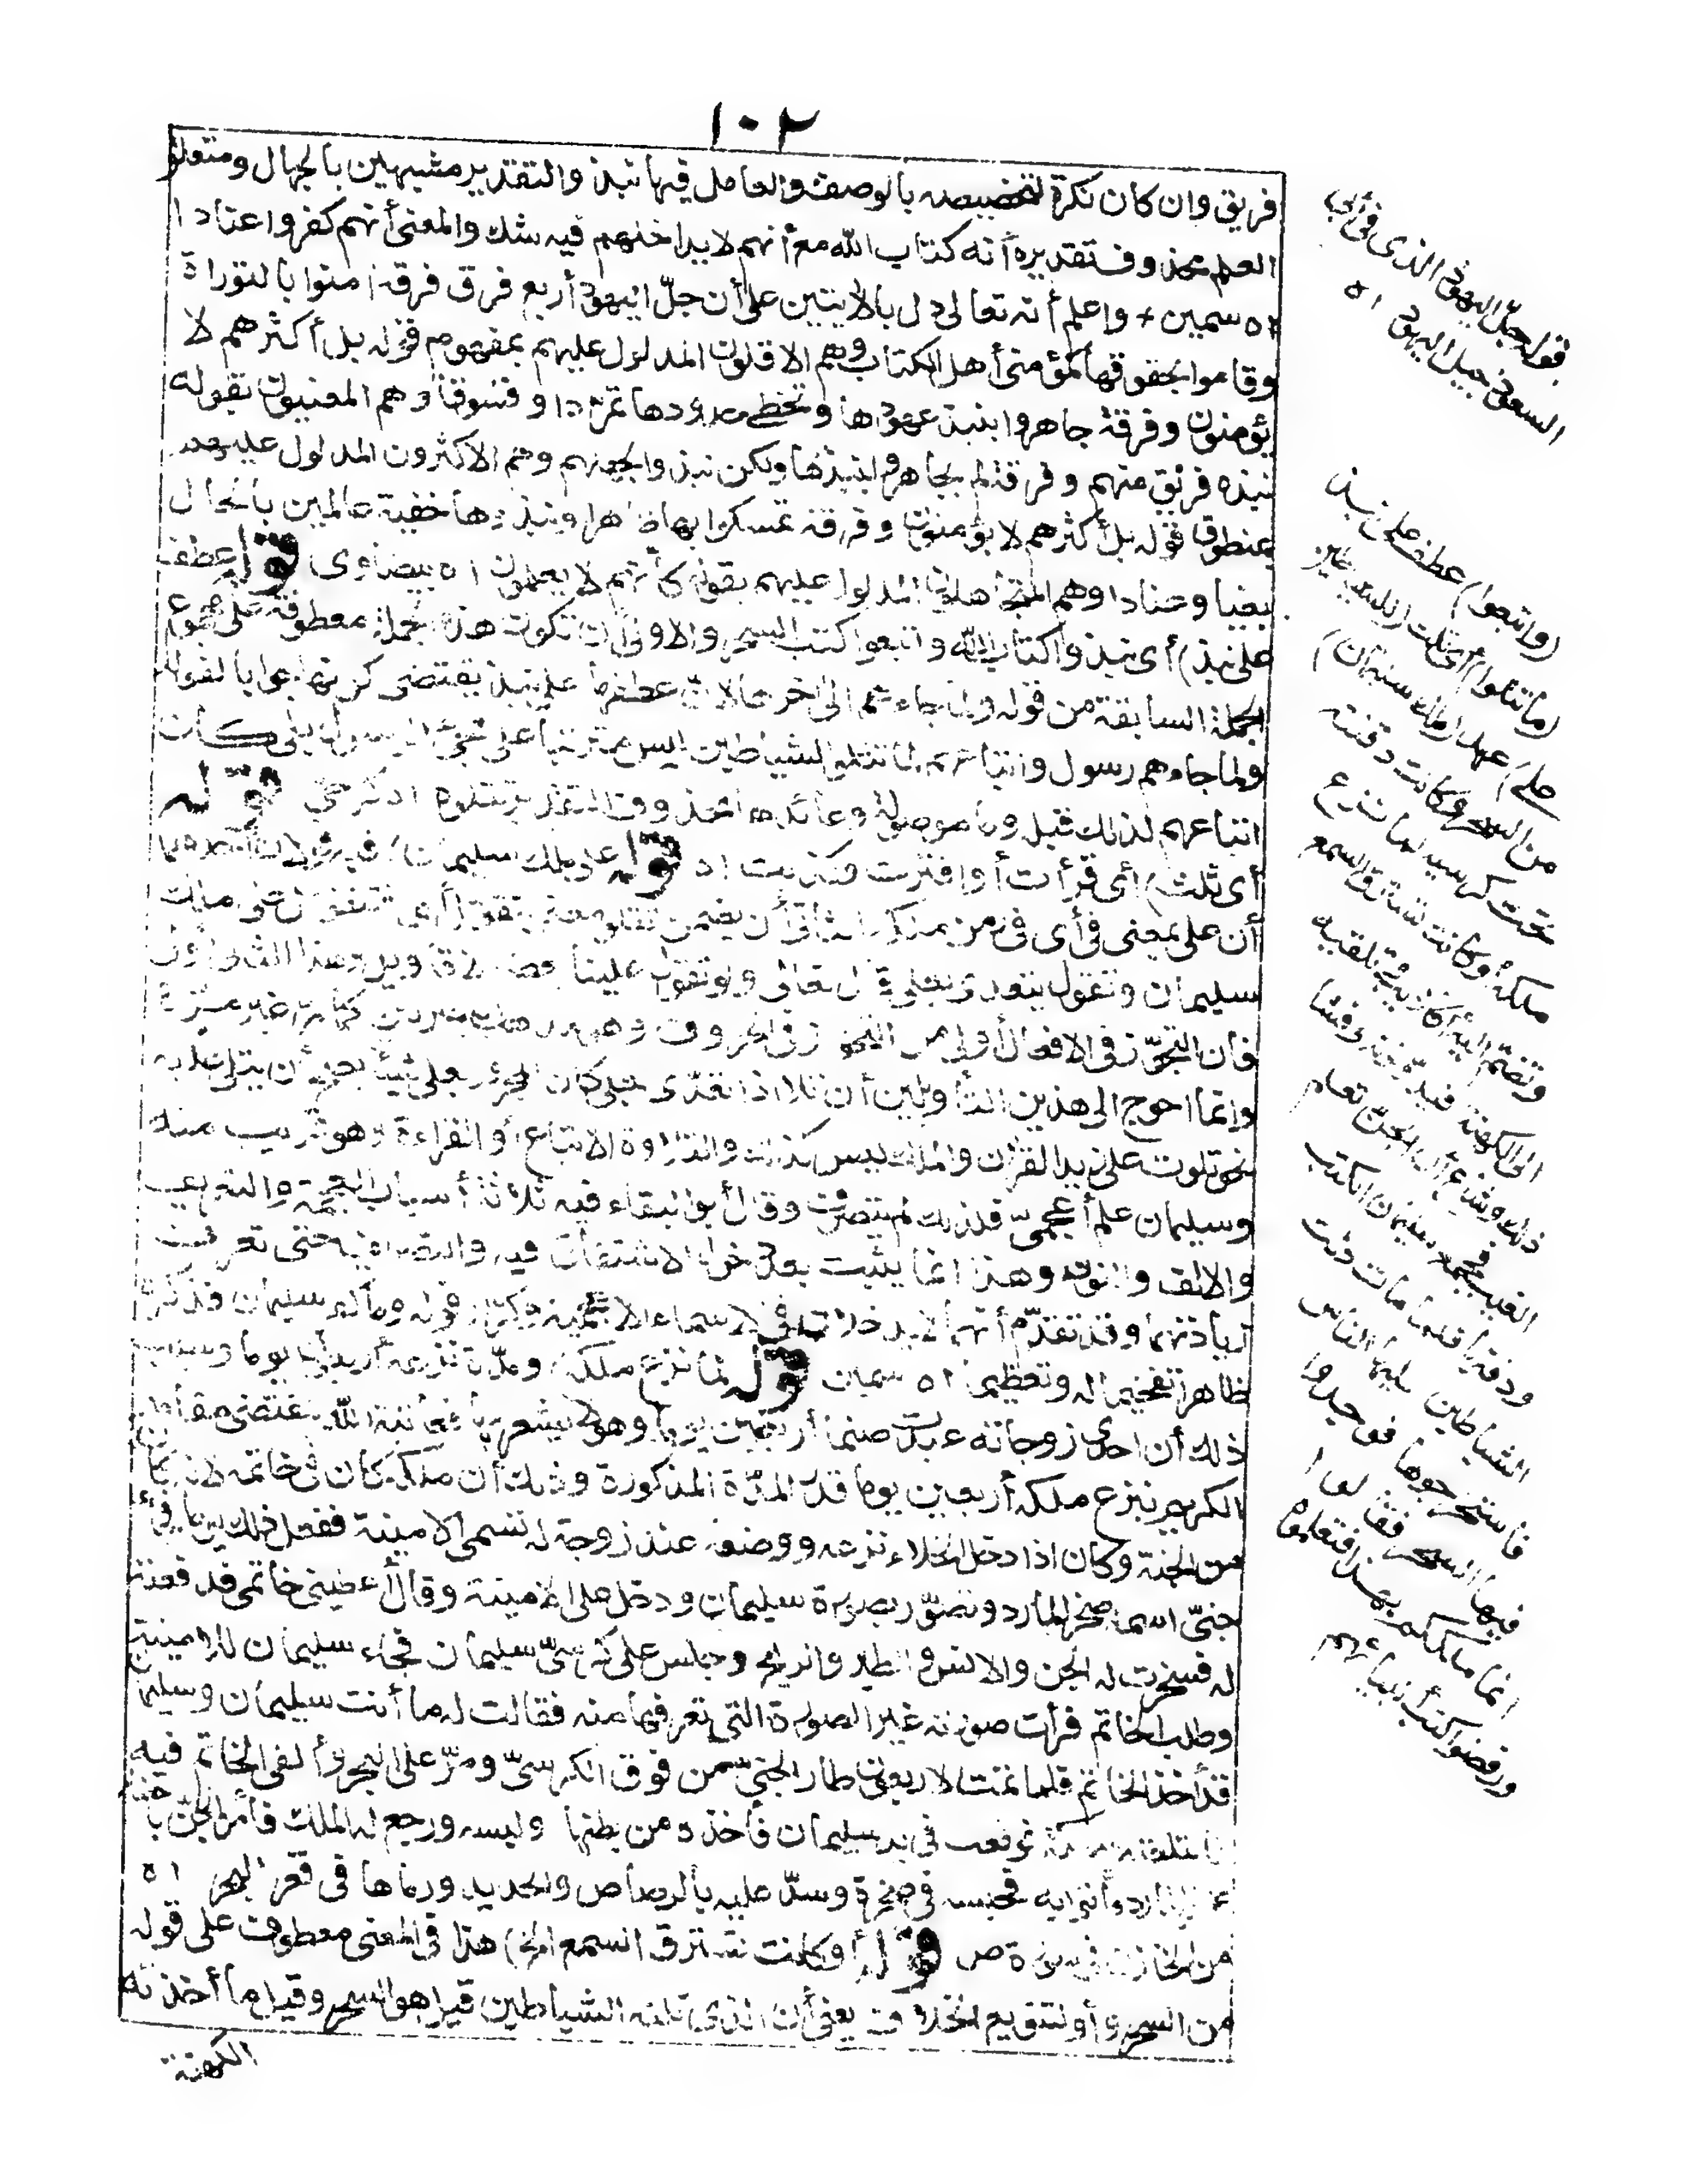 ١٠٢
فريق وان كان نكرة لتخصيصه بالوصف والعامل فيها نبذ والتقدير مشبهين بالجهال ومتعلق
العلم محذوف تقديره أنه كتاب الله مع أنهم لا يداخلهم فيه شك والمعنى أنهم كفروا عنادا
اه سمين + واعلم أنه تعالى دل بالآيتين على أن جلّ اليهود أربع فرق فرقة امنوا بالتوراة
وقاموا بحقوقها كمؤمنى أهل الكتاب وهم الاقلون المدلول عليهم بمفهوم قوله بل أكثرهم لا
يؤمنون وفرقة جاهروا بنبذ عهودها وتخطى حدودها تمرّدا وفسوقا وهم المعنيون بقوله
نبذه فريق منهم وفرقة لم يجاهروا بنبذها ولكن نبذوا لجهلهم وهم الاكثرون المدلول عليهم
بمنطوق قوله بل أكثرهم لا يؤمنون وفرقة تمسكوا بها ظاهرا ونبذوها خفية عالمين بالحال
بغيا وعنادا وهم المتجاهلون المدلول عليهم بقوله كأنهم لا يعلمون اه بيضاوى قوله عطف
على نبذ) أى نبذوا كتاب الله واتبعوا كتب السحر والاولى أن تكون هذه الجملة معطوفة على مجموع
الجملة السابقة من قوله ولما جاءهم الى آخرها لان عطفها على نبذ يقتضى كونها جوابا لقوله
ولما جاءهم رسول واتباعهم لما تتلو الشياطين ليس مترتبا على مجئ الرسول بل كان
اتباعهم لذلك قبل وما موصولة وعائدها محذوف والتقدير تتلوه اه كرخى قوله
أى تلت) أى قرأت أو افترت وكذبت اه قوله على ملك سليمان) فيه قولان أحدهما
أن على بمعنى فى أى فى زمن ملكه والثانى أن يضمن تتلو معنى تتقول أى تتقول على ملك
سليمان وتقول يتعدى بعلى قال تعالى ولو تقول علينا بعض الاقاويل وهذا الثانى أولى
فان التجوّز فى الافعال أولى من التجوّز فى الحروف وهو مذهب البصريين كما مر غير مرّة
وانما احوج الى هذين التأويلين أن تلا اذا تعدّى بعلى كان المجرور بعلى شيأ يصح أن يتلى عليه
نحو تلوت على زيد القرآن والملك ليس كذلك والتلاوة الاتباع أو القراءة وهو قريب منه
وسليمان علم أعجمىّ فلذلك لم ينصرف وقال أبو البقاء فيه ثلاثة أسباب العجمة والتعريف
والالف والنون وهذا انما يثبت بعد دخول الاشتقاق فيه والتصريف فيه حتى تعرف
زيادتهما وقد تقدّم أنهما لا يدخلان فى الاسماء الاعجمية وكرّر قوله وما كفر سليمان فذكره
ظاهرا تفخيما له وتعظيما اه سمين قوله لما نزع ملكه) ومدّة نزعه أربعون يوما وسبب
ذلك أن احدى زوجاته عبدت صنما أربعين يوما وهو لا يشعر بها فعاتبه الله بمقتضى مقامه
الكريم بنزع ملكه أربعين يوما قدر المدّة المذكورة وذلك أن ملكه كان فى خاتمه لانه كان
من الجنة وكان اذا دخل الخلاء نزعه ووضعه عند زوجة له تسمى الامينة ففعل ذلك يوما فجاء
جنىّ اسمه صخر المارد وتصوّر بصورة سليمان ودخل على الامينة وقال أعطينى خاتمى فدفعته
له فسخرت له الجن والانس والطير والريح وجلس على كرسىّ سليمان فجاء سليمان للامينة
وطلب الخاتم فرأت صورته غير الصورة التى تعرفها منه فقالت له ما أنت سليمان وسليمان
قد أخذ الخاتم فلما تمت الاربعون طار الجنىّ من فوق الكرسىّ ومرّ على البحر وألقى الخاتم فيه
فابتلعته سمكة فوقعت فى يد سليمان فأخذه من بطنها ولبسه ورجع له الملك فأمر الجنّ باحضار
صخر المارد فأتوا به فحبسه فى صخرة وسدّ عليه بالرصاص والحديد ورماها فى قعر البحر اه
من الخازن فى سورة ص قوله أو كانت تسترق السمع الخ) هذا فى المعنى معطوف على قوله
من السحر وأو لتنويع الخلاف يعنى أن الذى تلته الشياطين قيل هو السحر وقيل ما أخذته
الكهنة
قوله جلّ اليهود الذى فى أبى
السعود جيل اليهود اه
(واتبعوا) عطف على نبذ
(ما تتلوا) أى تلت (الشياطين
على) عهد (ملك سليمان)
من السحر وكانت دفنته
تحت كرسيه لما نزع
ملكه أو كانت تسترق السمع
وتضم اليه أكاذيب وتلقيه
الى الكهنة فيدوّنونه وفشا
ذلك وشاع أن الجنّ تعلم
الغيب فجمع سليمان الكتب
ودفنها فلما مات دلت
الشياطين عليها الناس
فاستخرجوها فوجدوا
فيها السحر فقالوا
انما ملككم بهذا فتعلموه
ورفضوا كتب أنبيائهم